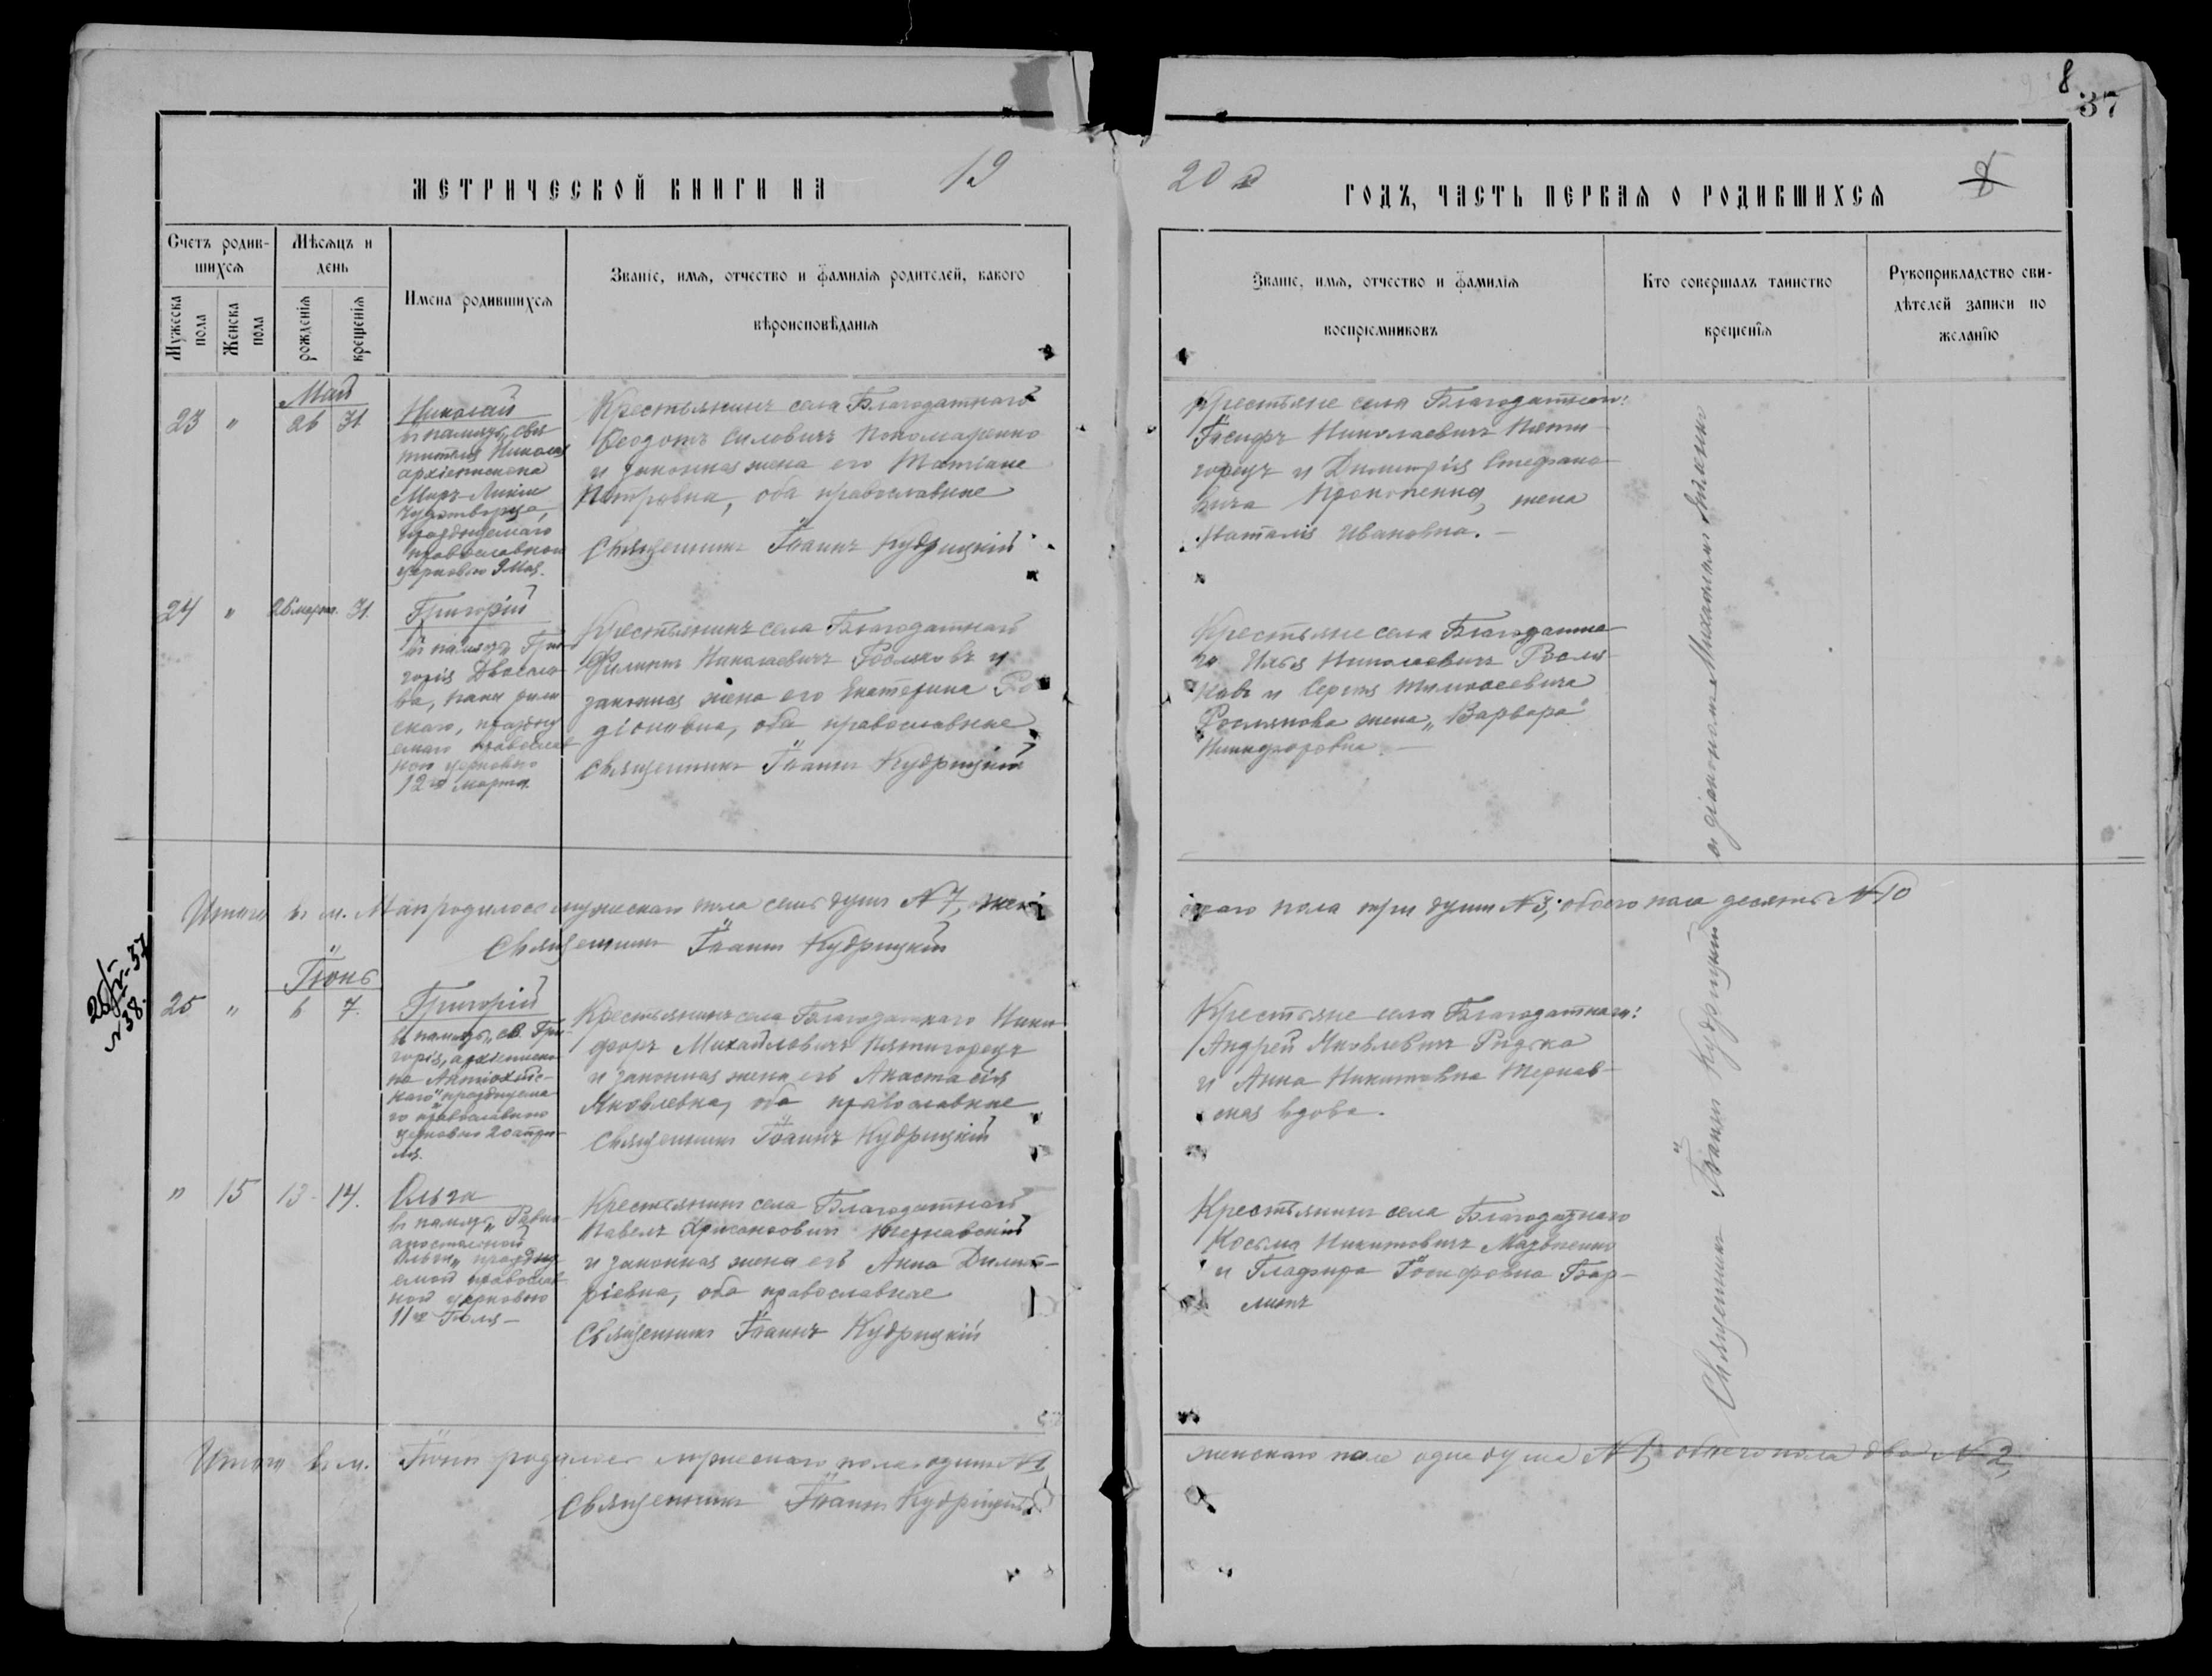 8
37
МЕТРИЧЕСКОЙ КНИГИ НА 19
20 ГОДЪ, ЧАСТЬ ПЕРВАЯ О РОДИВШИХСЯ
8
Счетъ родив-
шихся
Мужеска пола
Женска пола
Мѣсяцъ и
день
рожденія
крещенія
Имена родившихся
Званіе, имя, отчество и фамилія родителей, какого
вѣроисповѣданія
Званіе, имя, отчество и фамилія
воспріемниковъ
Кто совершалъ таинство
крещенія
Рукоприкладство сви-
дѣтелей записи по
желанію
Май
23 " 26 31
Николай
въ память „свя
тителя Николая
архіепископа
Мѵръ-Ликій
чудотворца,
празднуемаго
православной
церковью 9 Мая.
Крестьянинъ села Благодатнаго
Ѳеодотъ Силовичъ Пономаренко
и законная жена его Татіана
Петровна, оба православные
Священникъ Іоаннъ Кудрицкій
Крестьяне села Благодатнаго:
Іосифъ Николаевичъ Пяти-
горецъ и Димитрія Стефано-
вича Прокопенка, жена
Наталія Ивановна. —
24 " 26 марта. 31.
Григорій
въ память „Гри-
горія Двоесло-
ва, папы рим
скаго, праздну
емаго православ
ной церковью
12го марта.
Крестьянинъ села Благодатнаго
Филиппъ Николаевичъ Росляковъ и
законная жена его Екатерина Ро-
діоновна, оба православные
Священникъ Іоаннъ Кудрицкій
Крестьяне села Благодатна-
го Илья Николаевичъ Росля-
ковъ и Сергѣя Тимоѳеевича
Рослякова жена „Варвара"
Никифоровна. —
Итого въ м. Маѣ родилось мужескаго пола семь душъ № 7, жен-
скаго пола три души № 3, обоего пола десять № 10
Священникъ Іоаннъ Кудрицкій
Іюнь
25 " 6 7.
Григорій
въ память „св. Гри-
горія, архіеписко-
па Антіохійс-
каго" празднуема-
го православною
церковью 20 апрѣ-
ля.
Крестьянинъ села Благодатнаго Ники-
форъ Михайловичъ Пятигорецъ
и законная жена его Анастасія
Яковлевна, оба православные
Священникъ Іоаннъ Кудрицкій
Крестьяне села Благодатнаго:
Андрей Яковлевичъ Рядька
и Анна Никитовна Тернав-
ская вдова.
" 15 13 - 14.
Ольга
въ память „Равно-
апостольной
Ольги" праздну
емой православ
ной церковью
11го Іюля —
Крестьянинъ села Благодатнаго
Павелъ Тернавскій
и законная жена его Анна Димит-
ріевна, оба православные
Священникъ Іоаннъ Кудрицкій
Крестьянинъ села Благодатнаго
Косьма Никитовичъ
и Глафира Іосифовна
Священникъ Іоаннъ Кудрицкій съ діакономъ Михаиломъ
Итого въ м. Іюнѣ родилось мужескаго пола одинъ № 1
женскаго пола одна душа № 1, обоего пола два № 2,
Священникъ Іоаннъ Кудрицкій